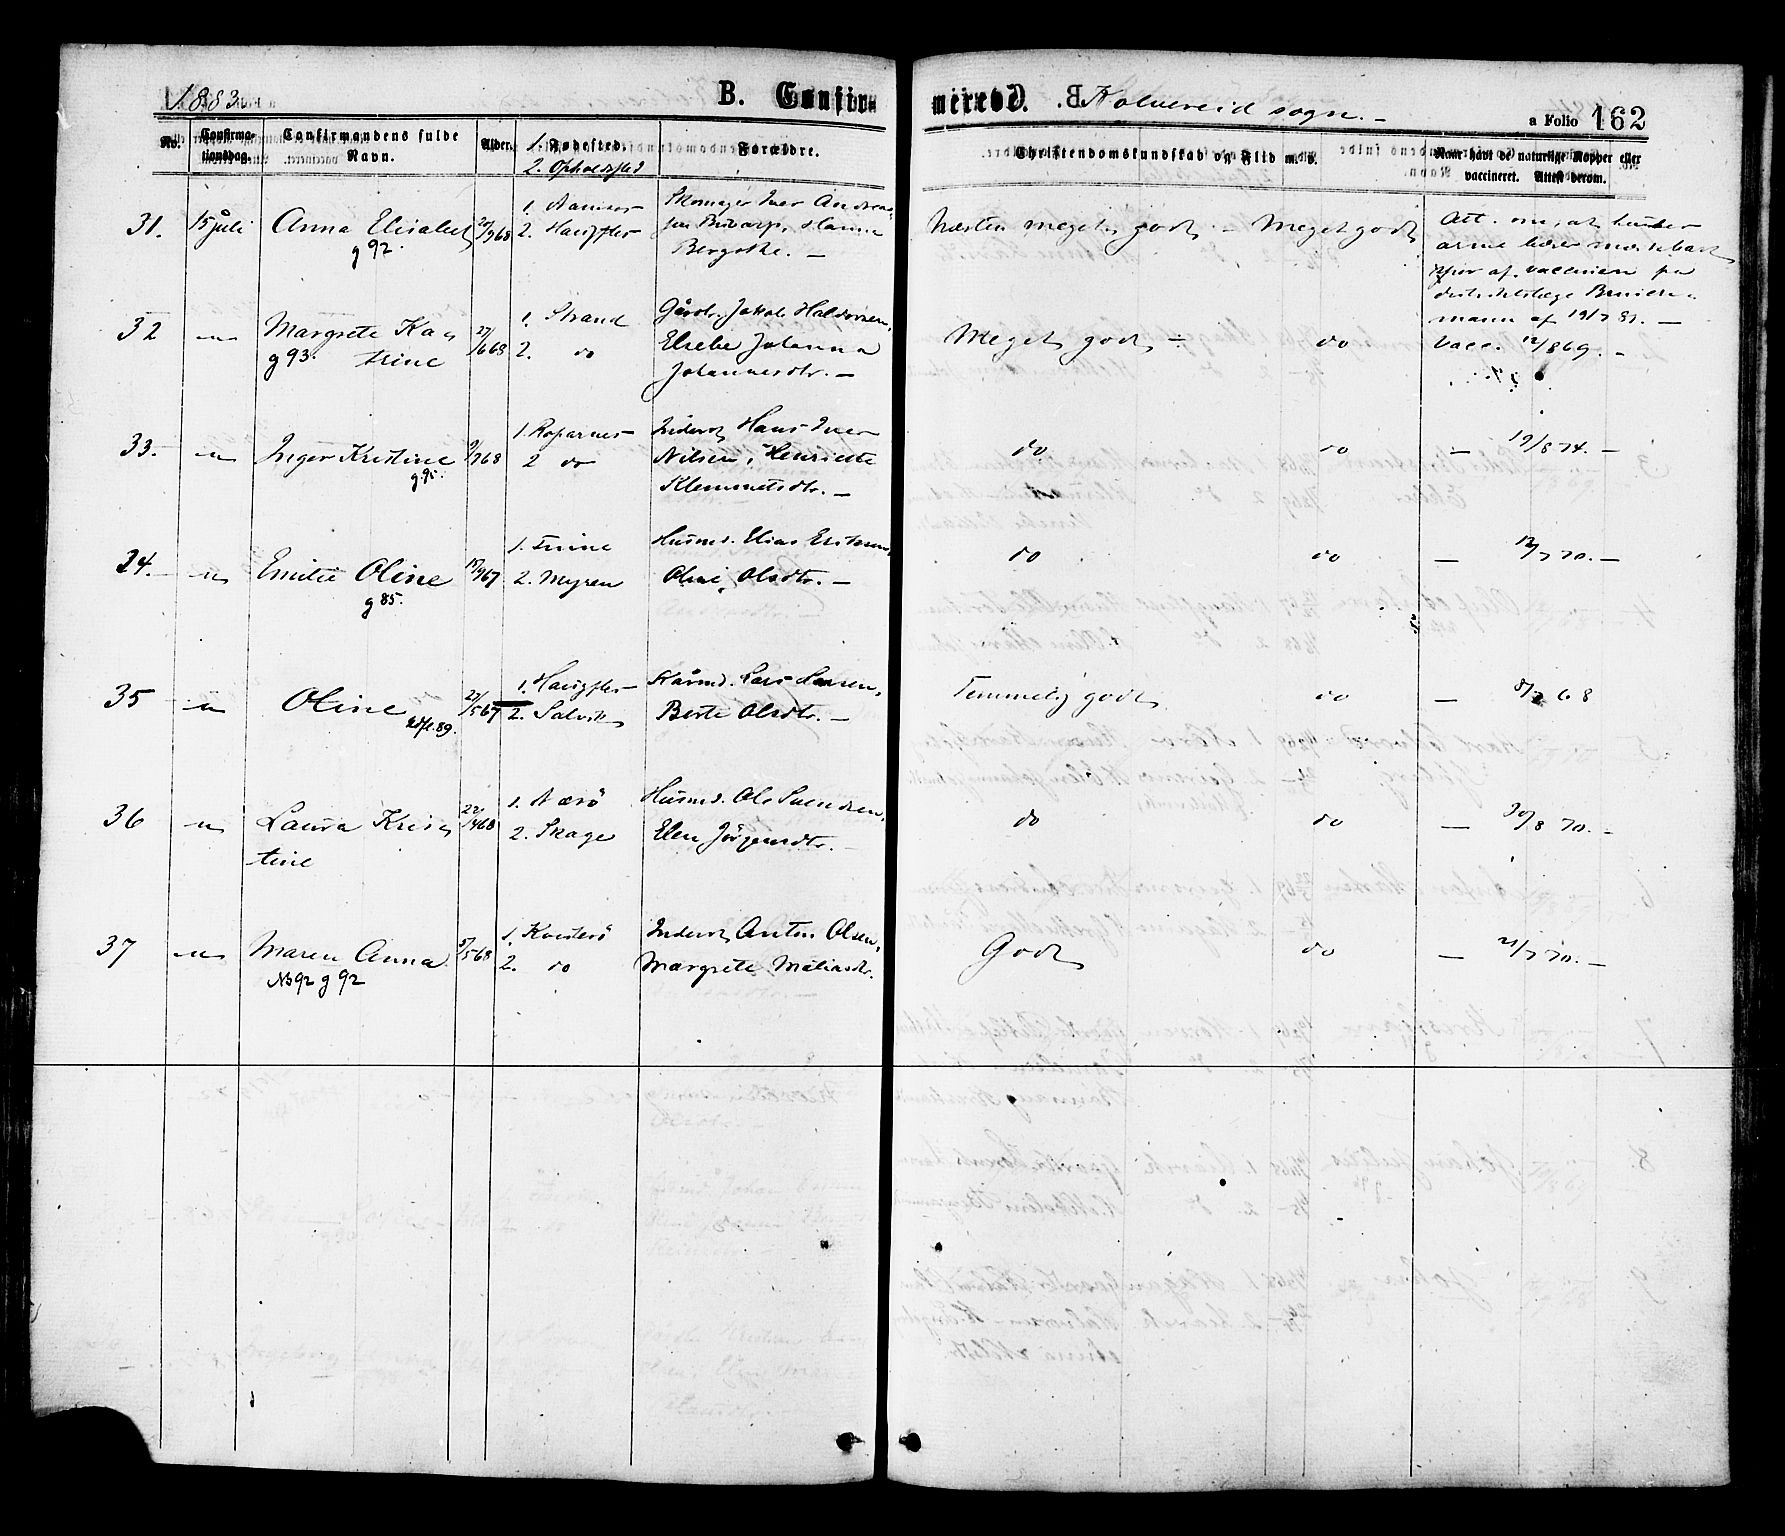 1883.
B. Confirmerede.
Kolvereid sogn. –
a Folio 162
No.
Confirmationsdag.
Confirmandens fulde Navn.
Alder.
1. Fødested.
2. Opholdssted
Forældre.
Christendomskundskab og Flid m. v.
Naar havt de naturlige Kopper eller vaccineret. Attest derom.
31.
15 juli
Anna Elisabet
g 92.
1.
2. Haugfles
Iver Andrea-
Hanna
Næsten meget godt –
Meget godt
Att. om, at hender
arme bærer mærkbart
spor af vaccinen fra
distriktslæge
mann af 19/7 83. –
32
– " –
Margrete Ka-
trine
g 93.
27/6 68
1. Strand
2. do
Gårdb. Jakob Haldorsen,
Elsebe Johanna
Johannesdtr. –
Meget godt –
do
Vacc. 12/8 69. –
33.
– " –
Inger Kristine
g. 95.
1. Roparnes
2 do
Inderst Hans Iver
Nilsen, Henriette
Klemmetsdtr. –
do
do
– 19/8 74. –
34.
– " –
Emilie Oline
g 85.
1. Finne
2. Myren
Husmd. Elias Eriksen,
Oline Olsdtr. –
do
do
– 12/7 70. –
35
– " –
Oline
89.
27/5 67
1. Haugfles
2. Salvik
Lars Larsen,
Berte Olsdtr. –
Temmelig godt
do
– 68
36
– " –
Laura Kris-
tine
22/4 68
1. Nærö
2. Skage
Husmd. Ole Svendsen,
Elen Jörgensdtr. –
do
do
– 30/8 70. –
37
– " –
Maren Anna
No 92 g 92
1. Kvisterö
2. do
Inderst Anton Olsen,
Margrete Mathiasdtr.
Godt
do
– 21/7 70. –